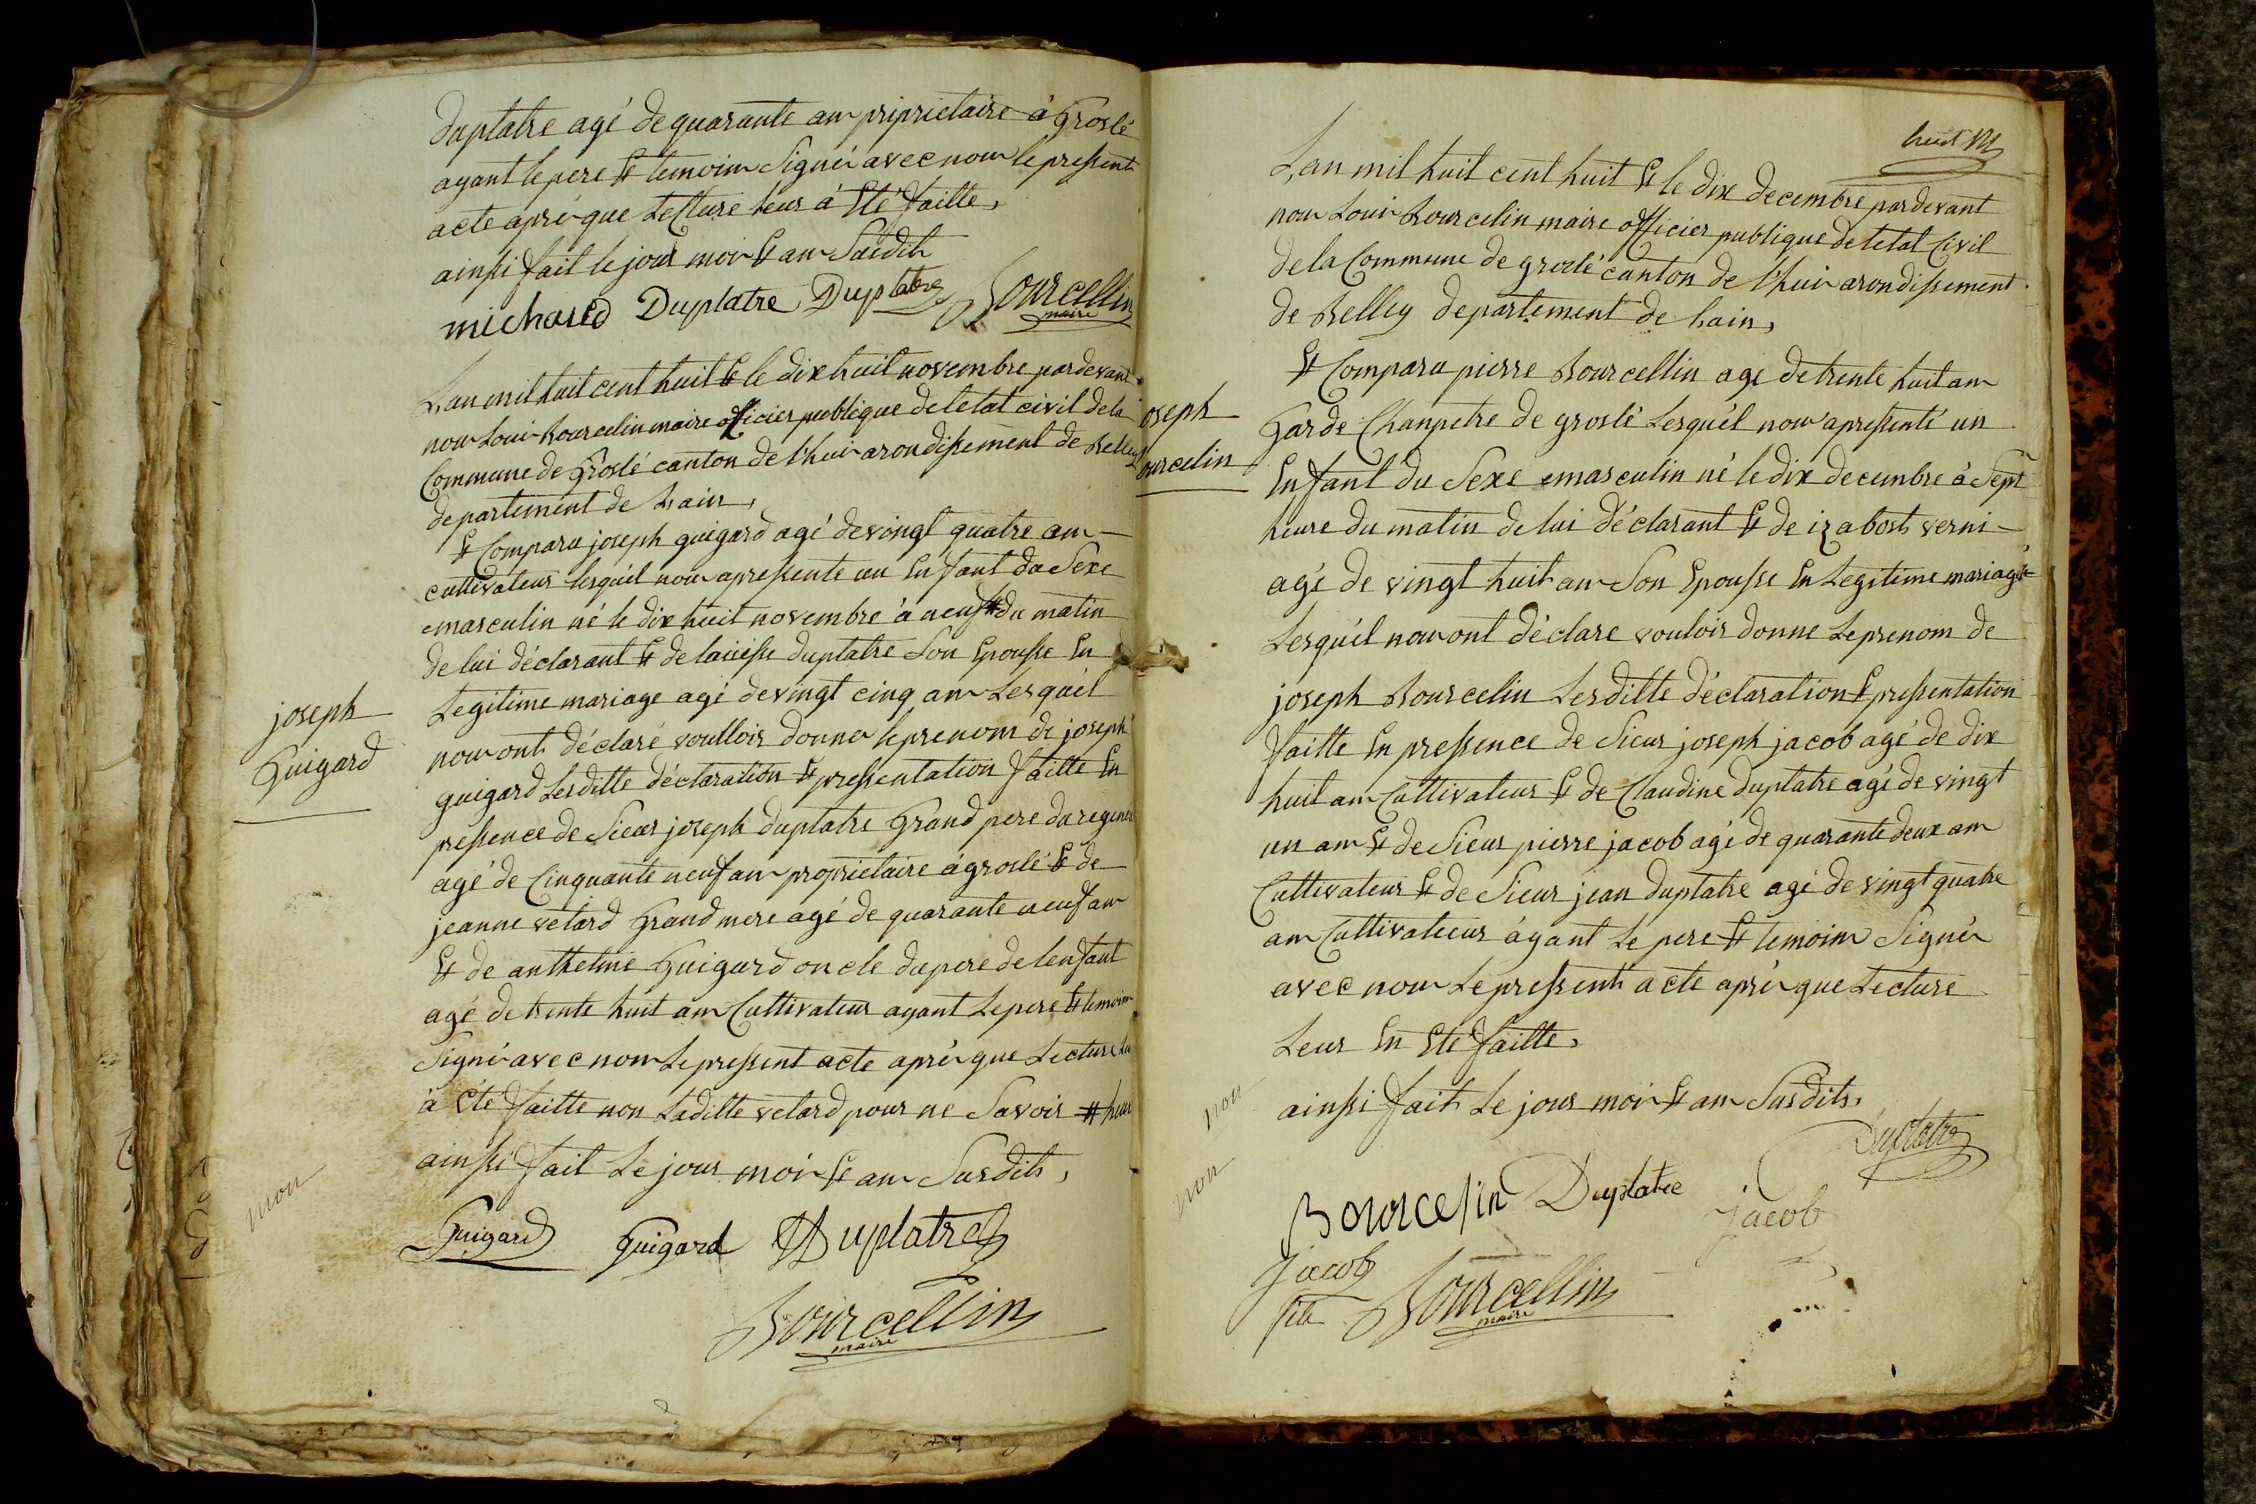 duplatre agé de quarante ans proprietaire à Groslé
ayant le pere et temoins Signés avec nous le pressents
acte après que Lecture leur à Eté faitte,
ainssi fait le jour mois et an Susdits
michaud Duplatre Duplatre Bourcellin
maire
L'an mil huit cent huit et le dix huit novembre pardevant
nous Louis Bourcelin maire officier publique de letat civil de la
Commune de Groslé canton de l'huis arondissement de Belley
departement de Lain,
Et Comparu joseph guigard agé de vingt quatre ans
cultivateur lesquel nous apressente un Enfant du Sexe
masculin né le dix huit novembre à neuf # du matin
de lui déclarant et de duplatre Son Epousse En
Legitime mariage agé de vingt cinq ans Lesquél
nous onts déclaré voulloir donner le prenom de joseph
guigard Lesditte déclaration et pressentation faitte En
joseph
Guigard
pressence de Sieur joseph duplatre Grand pere
agé de Cinquante neuf ans proprietaire à groslé et de
jeanne vetard Grand mere agé de quarante neuf ans
Et de anthelme Guigard oncle du pere de lenfant
agé de trente huit ans Cultivateur ayant Le pere et temoins
Signé avec nous Le pressent acte après que Lecture
à été faitte non Laditte vetard pour ne Savoir # heure
ainssi fait Le jour mois et an Susdits,
non
Guigard Guigard Duplatre
Bourcellin
maire
huit
L'an mil huit cent huit Et le dix decembre pardevant
nous Louis Bourcelin maire officier publique de letat Civil
de la Commune de groslé canton de l'huis arondissement
de Belley departement de Lain,
Et Comparu pierre Bourcellin agé de trente huit ans
oseph
ourcelin
Garde Chanpetre de groslé Lesquél nous apressenté un
Enfant du Sexe masculin né le dix decembre à Sept
heure du matin de lui déclarant Et de izabost verni
agé de vingt huit ans Son Epousse En Legitime mariage
Lesquél nous ont déclare vouloir donne Le prenom de
joseph Bourcelin Lesditte déclaration Et pressentation
faitte En pressence de Sieur joseph jacob agé de dix
huit ans Cultivateur Et de Claudine duplatre agé de vingt
un ans Et de Sieur pierre jacob agé de quarante deux ans
Cultivateur Et de Sieur jean duplatre agé de vingt quatre
ans Cultivateur áyant Le pere Et temoins Signés
avec nous Le pressents acte après que Lecture
Leur En Eté faitte,
non
ainssi fait Le jour mois Et an Susdits,
non
Duplatre
Bourcelin Duplatre jacob
Jacob
fils Bourcellin
maire